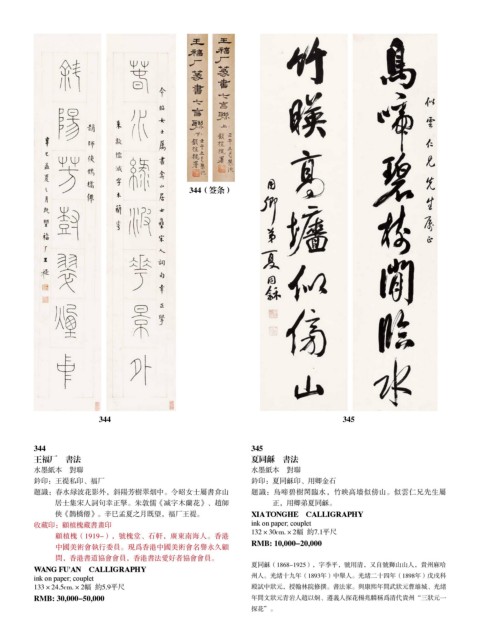 春水綠波花影外
令昭女士屬書弇山居士集宋人詞句幸正擘
朱敦儒減字木蘭花
斜陽芳樹翠煙中
趙師俠鵲橋仙
辛巳孟夏之月既望福厂王禔
王福厂篆書七言聯 上
王福厂篆書七言聯 下
344（签条）
鳥啼碧樹閒臨水
似雲仁兄先生屬正
竹暎高墻似傍山
用卿弟夏同龢
344
345
344
王福厂　書法
水墨紙本　對聯
鈐印：王禔私印、福厂
題識：春水綠波花影外，斜陽芳樹翠烟中。令昭女士屬書弇山
居士集宋人詞句幸正擘。朱敦儒《減字木蘭花》、趙師
俠《鵲橋僊》。辛巳孟夏之月既望，福厂王禔。
收藏印：顧植槐藏書畫印
顧植槐（1919-），號槐堂、石軒，廣東南海人。香港
中國美術會執行委員。現爲香港中國美術會名譽永久顧
問，香港書道協會會員，香港書法愛好者協會會員。
WANG FU'AN　CALLIGRAPHY
ink on paper; couplet
133 × 24.5cm. × 2幅　約5.9平尺
RMB: 30,000-50,000
345
夏同龢　書法
水墨紙本　對聯
鈐印：夏同龢印、用卿金石
題識：鳥啼碧樹閒臨水，竹映高墻似傍山。似雲仁兄先生屬
正，用卿弟夏同龢。
XIA TONGHE　CALLIGRAPHY
ink on paper; couplet
132 × 30cm. × 2幅　約7.1平尺
RMB: 10,000-20,000
夏同龢（1868-1925），字季平，號用清，又自號獅山山人，貴州麻哈
州人。光緒十九年（1893年）中舉人。光緒二十四年（1898年）戊戌科
殿試中狀元，授翰林院修撰。書法家。與康熙年間武狀元曹維城、光緒
年間文狀元青岩人趙以炯、遵義人探花楊兆麟稱爲清代貴州“三狀元一
探花”。